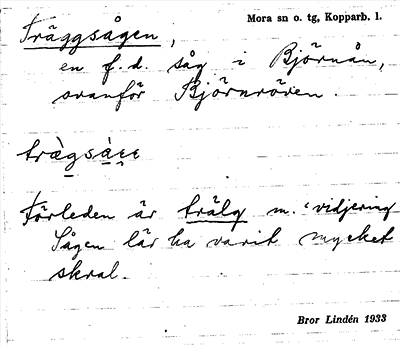 Träggsågen,
Mora sn o. tg, Kopparb. l.
en f.d. såg i Björnån,
ovanför Björnröven.
Förleden är trälg m. 'vidjering
Sågen lär ha varit mycket
skral.
Bror Lindén 1933